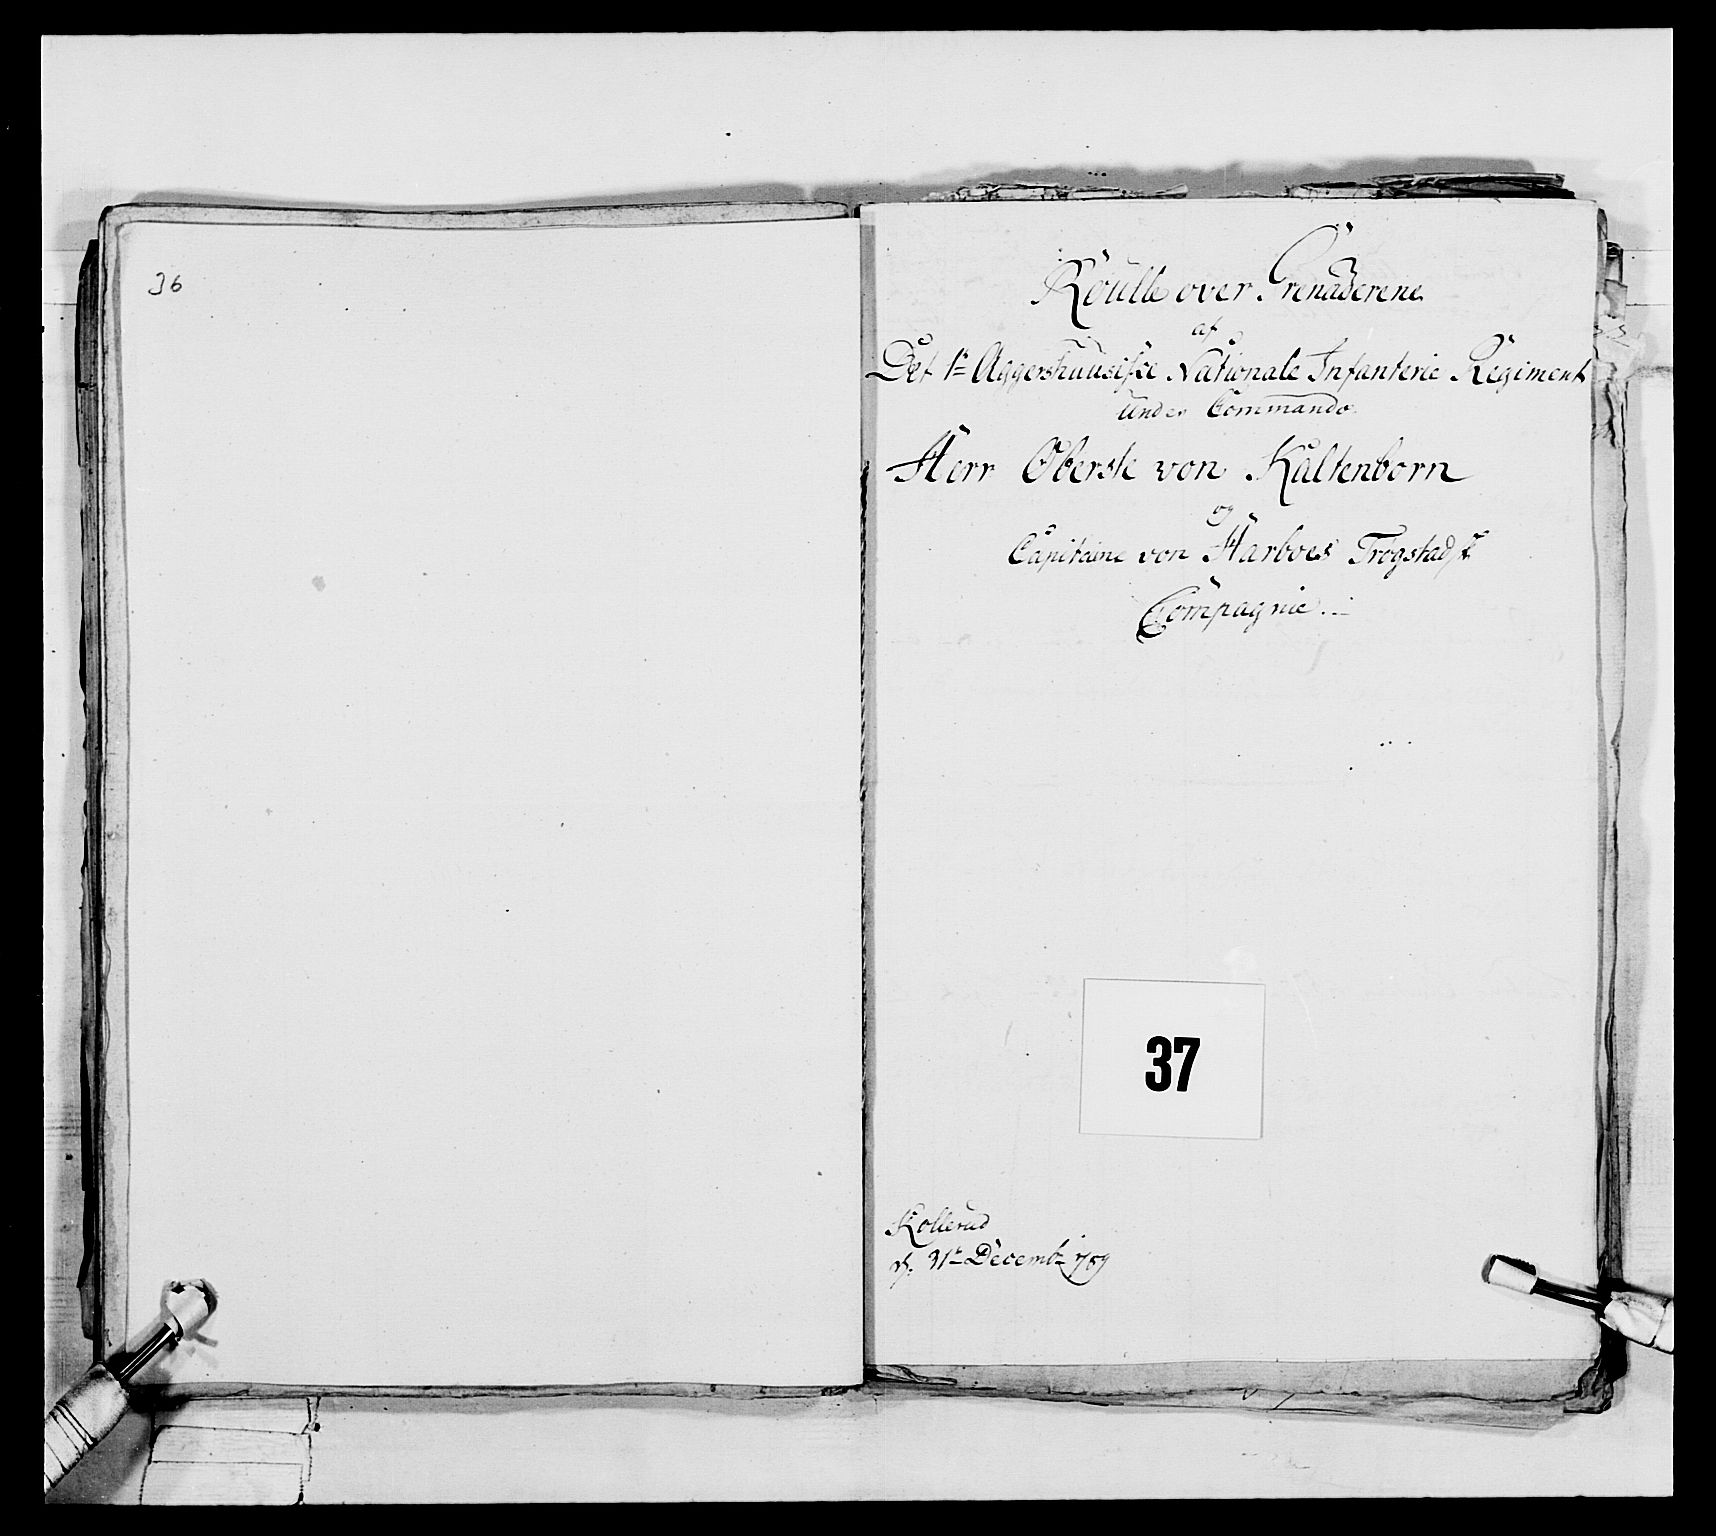 36
Roulle over Grenaderene
af
Det 1te Aggershuusiske Nationale Infanterie Regiment
under Commando
Herr Oberste von Kaltenborn
og
Capitaine von Harboes Trögstadske
Compagnie
37
Kollerud
d. 31te Decembr 1789